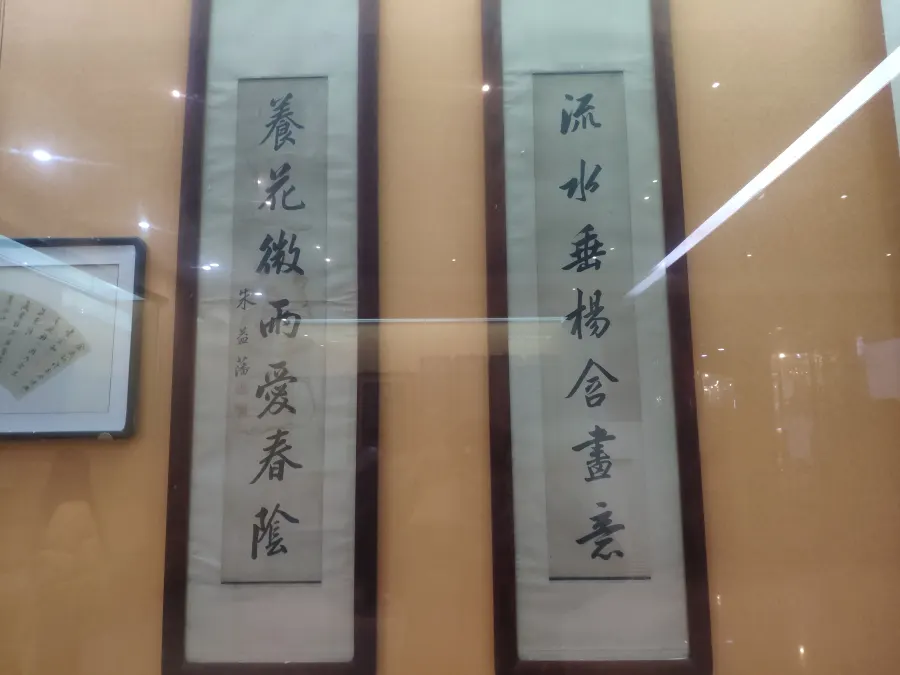 流水垂楊含畫意
養花微雨愛春陰
朱益藩